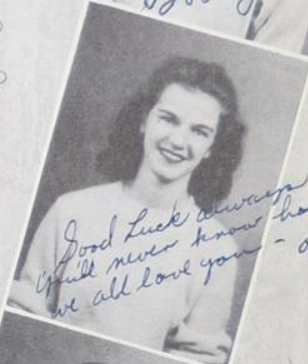 Good Luck always
you'll never know ho
we all love you -